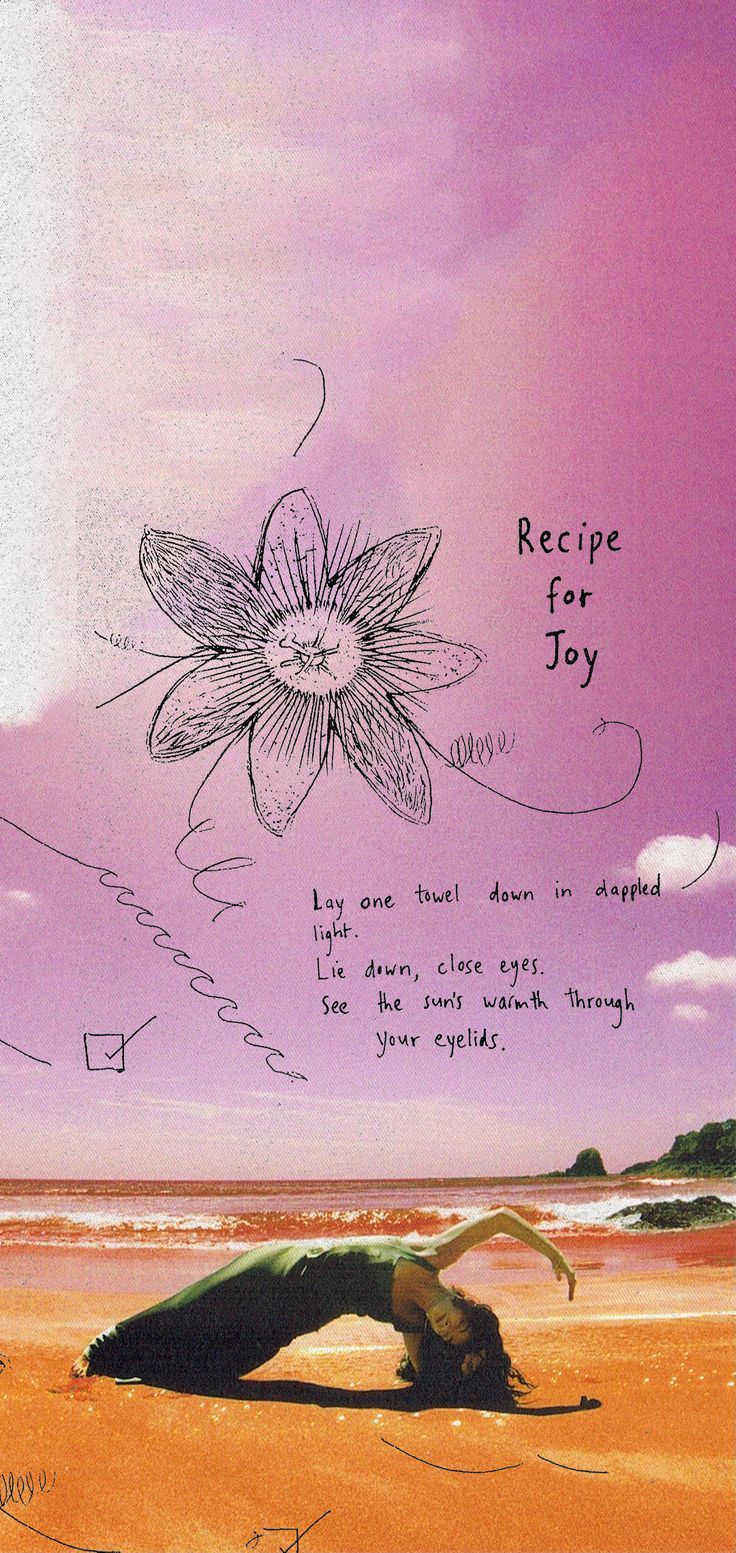 Recipe
for
Joy
Lay one towel down in dappled
light.
Lie down, close eyes.
See the sun's warmth through
your eyelids.